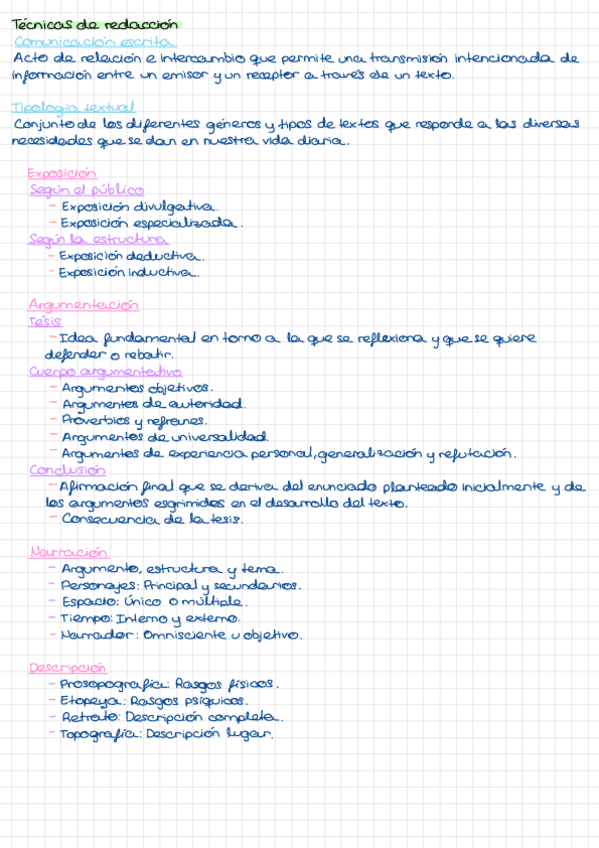 Técnicas de redacción
Comunicación escrita
Acto de relación e intercambio que permite una transmisión intencionada de
información entre un emisor y un receptor a través de un texto.
Tipología textual
Conjunto de los diferentes géneros y tipos de textos que responde a las diversas
necesidades que se dan en nuestra vida diaria.
Exposición
Según el público
- Exposición divulgativa.
- Exposición especializada.
Según la estructura
- Exposición deductiva.
- Exposición inductiva.
Argumentación
Tesis
- Idea fundamental en torno a la que se reflexiona y que se quiere
defender o rebatir.
Cuerpo argumentativo
- Argumentos objetivos.
- Argumentos de autoridad.
- Proverbios y refranes.
- Argumentos de universalidad.
- Argumentos de experiencia personal, generalización y refutación.
Conclusión
- Afirmación final que se deriva del enunciado planteado inicialmente y de
los argumentos esgrimidos en el desarrollo del texto.
- Consecuencia de la tesis.
Narración
- Argumento, estructura y tema.
- Personajes: Principal y secundarios.
- Espacio: Único o múltiple.
- Tiempo: Interno y externo.
- Narrador: Omnisciente u objetivo.
Descripción
- Prosopografía: Rasgos físicos.
- Etopeya: Rasgos psíquicos.
- Retrato: Descripción completa.
- Topografía: Descripción lugar.